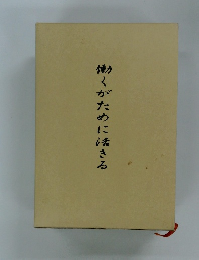 働くがために活きる